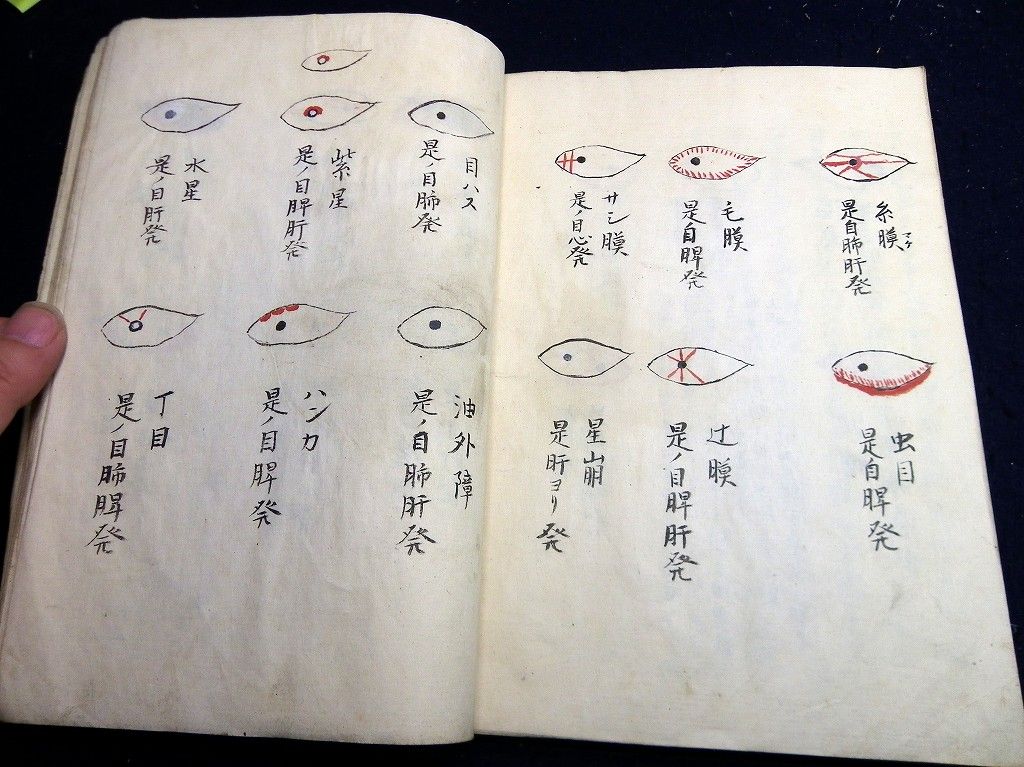 糸膜 マケ
是自肺肝発
毛膜
是自脾発
サシ膜
是ノ目心発
虫目
是自脾発
辻膜
是ノ目脾肝発
星崩
是肝ヨリ発
目ハス
是ノ目肺発
紫星
是ノ目脾肝発
水星
是ノ目肝発
油外障
是ノ目肺肝発
ハンカ
是ノ目脾発
丁目
是ノ目肺脾発